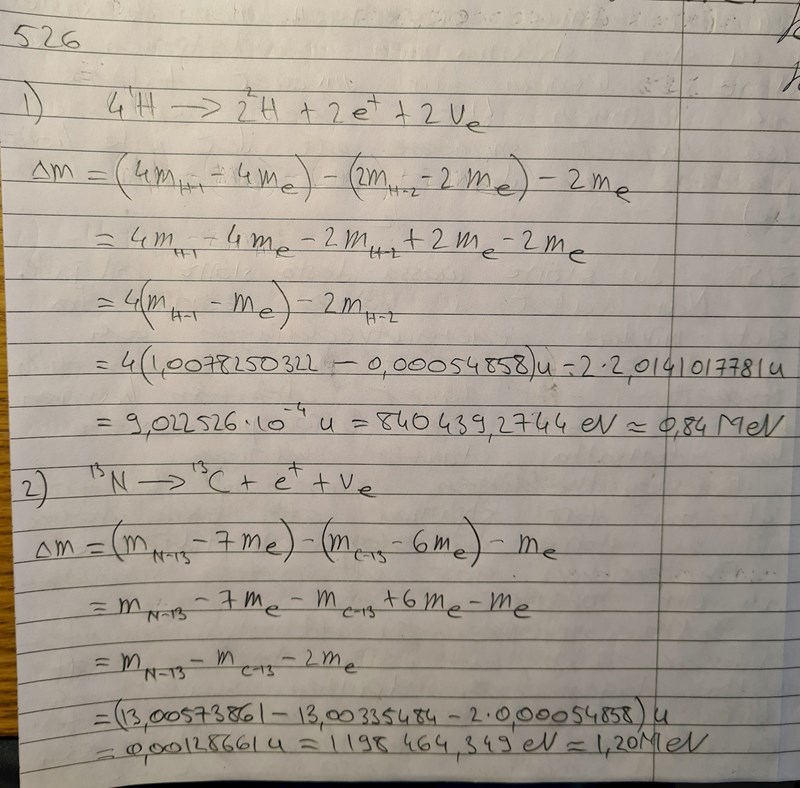 526
1) 4¹H → 2²H + 2e⁺ + 2νₑ
Δm = (4m_H-1 - 4mₑ) - (2m_H-2 - 2mₑ) - 2mₑ
= 4m_H-1 - 4mₑ - 2m_H-2 + 2mₑ - 2mₑ
= 4(m_H-1 - mₑ) - 2m_H-2
= 4(1,0078250322 - 0,00054858)u - 2·2,0141017781u
= 9,022526·10⁻⁴ u = 840439,2744 eV ≈ 0,84 MeV
2) ¹³N → ¹³C + e⁺ + νₑ
Δm = (m_N-13 - 7mₑ) - (m_C-13 - 6mₑ) - mₑ
= m_N-13 - 7mₑ - m_C-13 + 6mₑ - mₑ
= m_N-13 - m_C-13 - 2mₑ
= (13,00573861 - 13,00335484 - 2·0,00054858) u
= 0,00128661 u = 1198464,349 eV ≈ 1,20 MeV